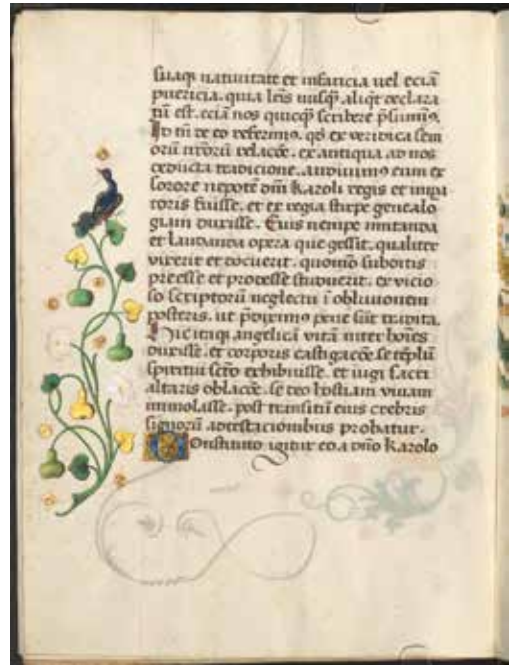 suaq; natiuitate et infancia uel eciā
puericia. quia lr̄is nusq̄ aliqͥt declara
tū est. eciā nos quicq̄ scribere p̄sumim9.
Id tn̄ de eo referim9. qd ex veridica sem
orū nr̄orū relacōe. ex antiqua ad nos
deducta tradicione. audiuim9 eum ex
sorore nepotē dn̄i karoli regis et impa
toris fuisse. et ex regia stirpe genealo
giam duxisse. Eius nempe imitanda
et laudanda opera que gessit. qualiter
vixerit et docuerit. quomō subditis
preesse et prodesse studuerit. ex vicio
so scriptorū neglectu ī obliuionem
posteris. ut p̄diximo pene sūt tradita.
Hic itaq; angelicā vitā inter hoīes
duxisse. et corporis castigacōe se tēplū
spiritui scō exhibuisse. et iugi sacri
altaris oblacōe. se deo hostiam viuam
immolasse. post transitū eius crebris
signorū adtestacionibus probatur.
Constituto igitur eo a dn̄o karolo